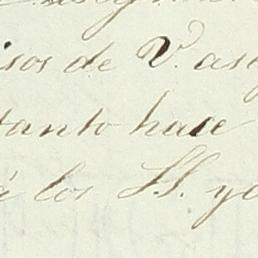 isos de V. ase
tanto hace
á los SS. ye